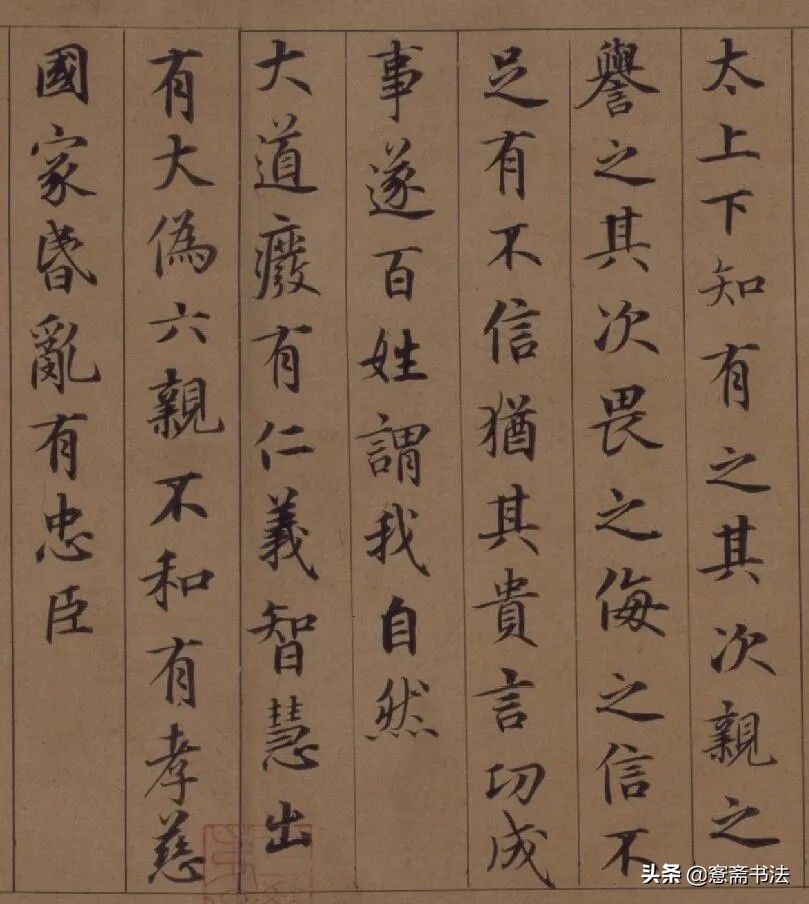 太上下知有之其次親之
譽之其次畏之侮之信不
足有不信猶其貴言功成
事遂百姓謂我自然
大道癈有仁義智慧出
有大偽六親不和有孝慈
國家昬亂有忠臣
头条 @窻斋书法